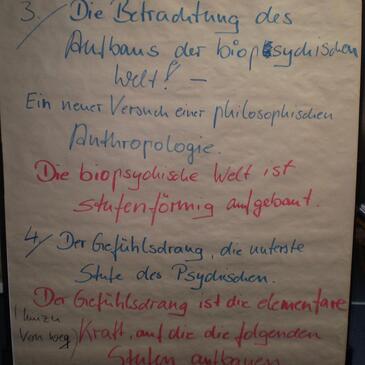 3./ Die Betrachtung des
Aufbaus der biopsychischen
Welt! –
Ein neuer Versuch einer philosophischen
Anthropologie.
Die biopsychische Welt ist
stufenförmig aufgebaut.
4./ Der Gefühlsdrang, die unterste
Stufe des Psychischen.
Der Gefühlsdrang ist die elementare
hinzu
Von weg
Kraft, auf die die folgenden
Stufen aufbauen